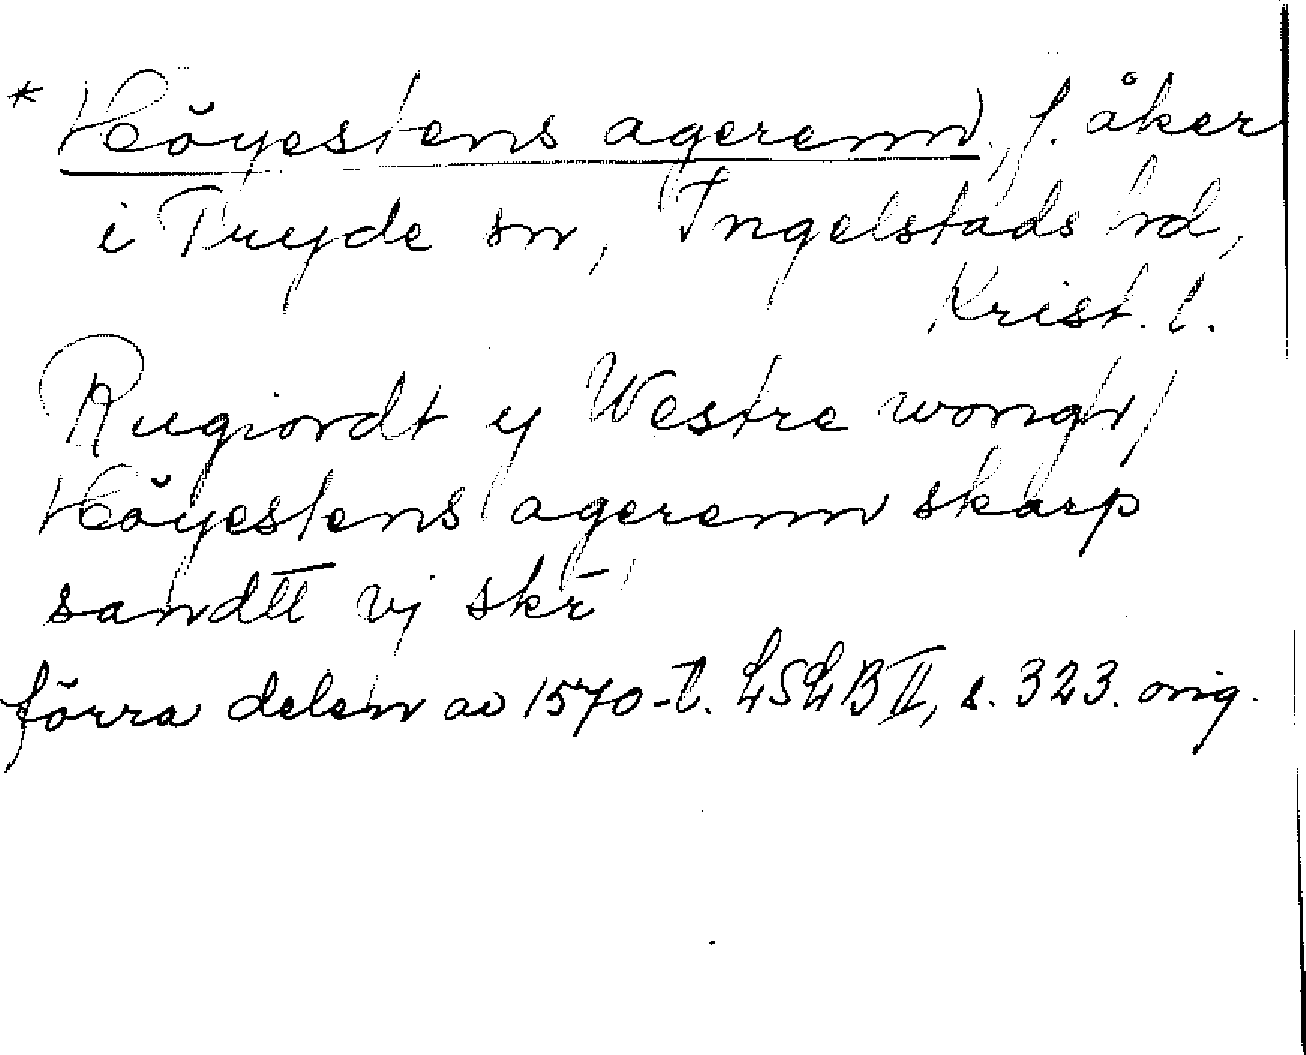 * Höyestens agerenn, f. åker
i Tryde sn, Ingelstads hd,
Krist. l.
Rugiordt y Westre wongh /
Höyestens agerenn skarp
sandtt vj skr̄
förra delen av 1570-t. LSLB II, s. 323. orig.